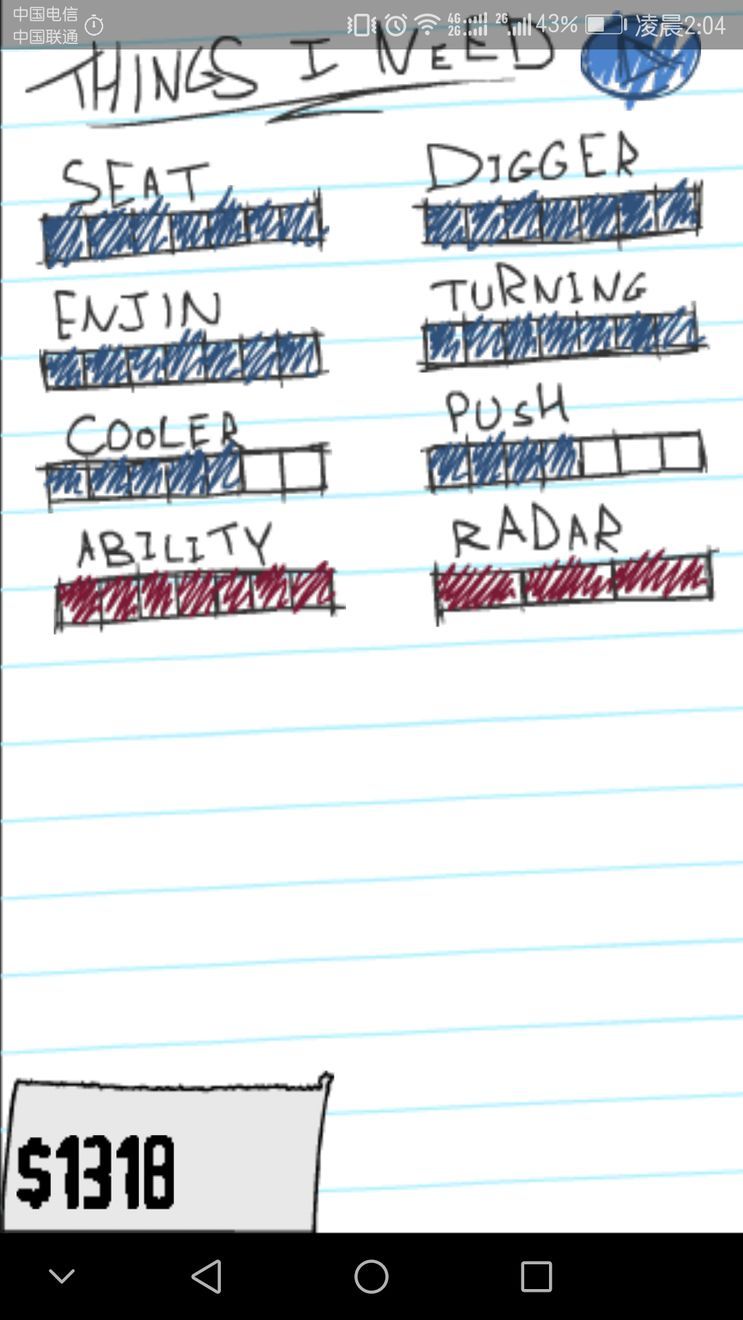 中国电信
中国联通
4G 2G 2G 43% 凌晨2:04
THINGS I NEED
SEAT DIGGER
ENJIN TURNING
COOLER PUSH
ABILITY RADAR
$1318